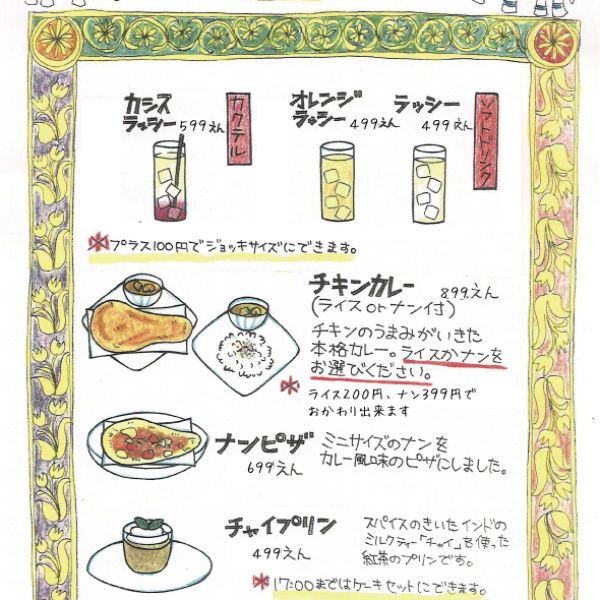 カシス
ラッシー 599えん
カクテル
オレンジ
ラッシー 499えん
ラッシー
499えん
ソフトドリンク
※プラス100円でジョッキサイズにできます。
チキンカレー 899えん
(ライスorナン付)
チキンのうまみがいきた
本格カレー。ライスかナンを
お選びください。
※ライス200円、ナン399円で
おかわり出来ます
ナンピザ
699えん
ミニサイズのナンを
カレー風味のピザにしました。
チャイプリン
499えん
スパイスのきいたインドの
ミルクティー「チャイ」を使った
紅茶のプリンです。
※17:00まではケーキセットにできます。